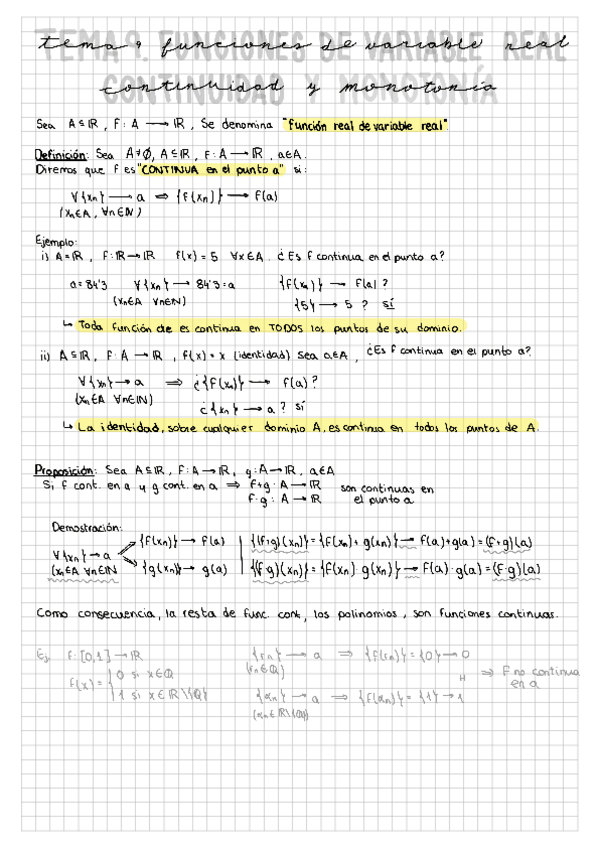 tema 9. funciones de variable real
continuidad y monotonía
Sea A⊆ℝ, F: A ⟶ ℝ, Se denomina "función real de variable real"
Definición: Sea A≠∅, A⊆ℝ, F: A⟶ℝ, a∈A.
Diremos que F es "CONTINUA en el punto a" si:
∀{xₙ} ⟶ a ⇒ {f(xₙ)} ⟶ f(a)
(xₙ∈A, ∀n∈ℕ)
Ejemplo:
i) A=ℝ, F: ℝ→ℝ f(x) = 5 ∀x∈A. ¿Es f continua en el punto a?
a=84'3 ∀{xₙ} ⟶ 84'3=a {f(xₙ)} ⟶ F(a)?
(xₙ∈A ∀n∈ℕ) {5} ⟶ 5 ? sí
↳ Toda función cte es continua en TODOS los puntos de su dominio.
ii) A⊆ℝ, F: A ⟶ ℝ, f(x) = x (identidad) Sea a∈A, ¿Es f continua en el punto a?
∀{xₙ} ⟶ a ⇒ ¿{f(xₙ)} ⟶ f(a)?
(xₙ∈A ∀n∈ℕ) ¿{xₙ} ⟶ a? sí
↳ La identidad, sobre cualquier dominio A, es continua en todos los puntos de A.
Proposición: Sea A⊆ℝ, F: A→ℝ, g: A→ℝ, a∈A
Si f cont. en a y g cont. en a ⇒ f+g: A ⟶ ℝ son continuas en
f·g: A ⟶ ℝ el punto a
Demostración:
{f(xₙ)} ⟶ f(a) {(f+g)(xₙ)} = {f(xₙ) + g(xₙ)} ⟶ f(a)+g(a) = (f+g)(a)
∀{xₙ}→a
(xₙ∈A ∀n∈ℕ {g(xₙ)} ⟶ g(a) {(f·g)(xₙ)} = {f(xₙ)·g(xₙ)} ⟶ f(a)·g(a) = (f·g)(a)
Como consecuencia, la resta de func. cont, los polinomios, son funciones continuas.
Ej. F: [0,1] → ℝ {rₙ} ⟶ a ⇒ {f(rₙ)} = {0} → 0
f(x) = { 0 si x∈ℚ (rₙ∈ℚ) ⇒ F no continua
1 si x∈ℝ\{ℚ} {αₙ} ⟶ a ⇒ {f(αₙ)} = {1} → 1 en a
(αₙ∈ℝ\{ℚ})